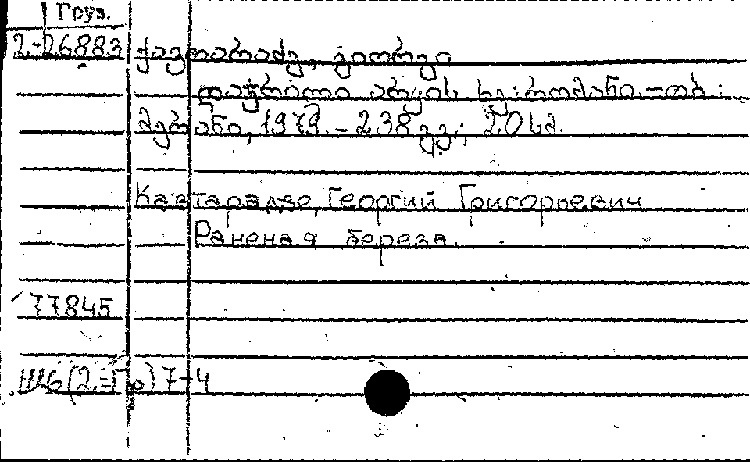 Груз.
2-26883 ქავთარაძე, გიორგი
დაჭრილი არყის ხე: რომანი.-თბ.:
მერანი, 1979. - 238 გვ.; 20 სმ.
Кавтарадзе, Георгий Григорьевич
Раненая береза.
77845
Ш6(2=Гр)7-4